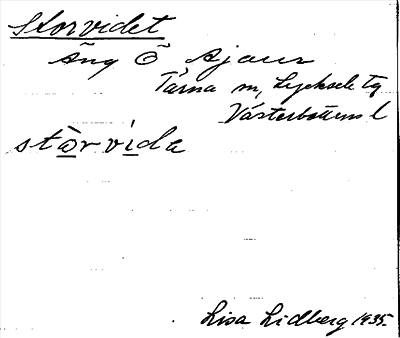 Storvidet
Äng Ö Ajaur
Tärna m, Lycksele tg
Västerbottens l
stòrvída
Lisa Lidberg 1935.